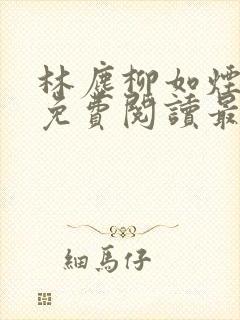 林塵柳如煙
免費閱讀最
細馬仔